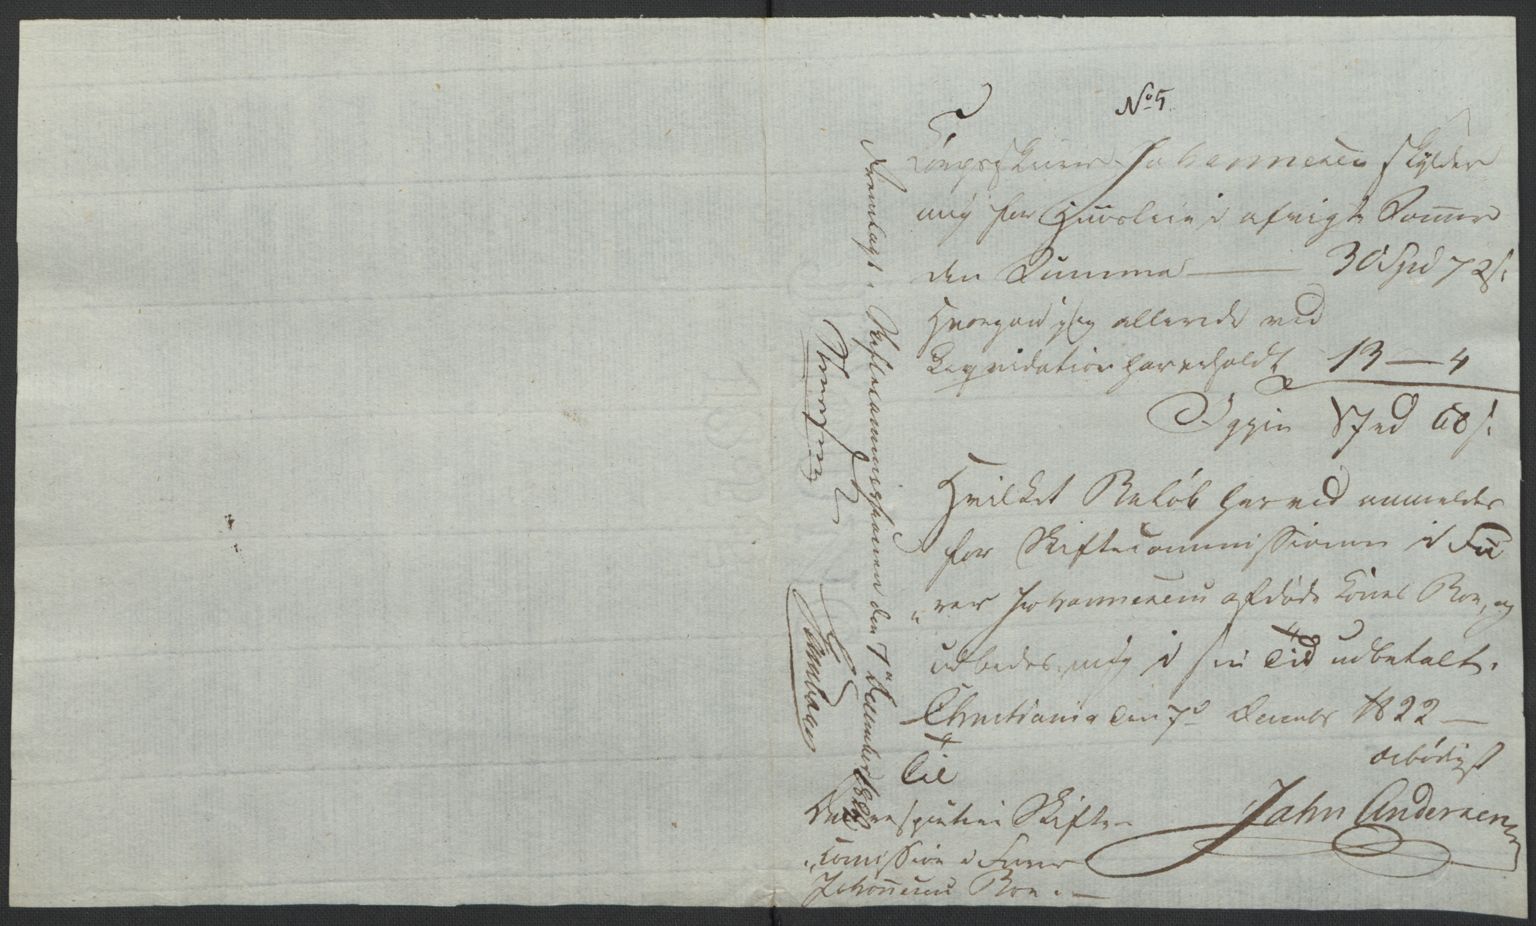 No 5
Johannesen skylder
mig for Huusleie i afvigte Sommer
den Summa — 30 Spd 72 s:
Hvorpaa jeg allerede ved
Liqvidation har erholdt 13 — 4
Igjen 17 Spd 68 s:
Hvilket Beløb herved anmeldes
for Skiftecommissionen i Fu
„rer Johannesens afdøde Kones Boe, og
udbedes mig i sin Tid udbetalt.
Christiania den 7d Decembr 1822 —
ærbødigst
John Andersen
Til
Den respective Skifte-
„Comission i Furer
Johannesens Boe. —
Fremlagt i Skiftecommissionen den 7de December 1822